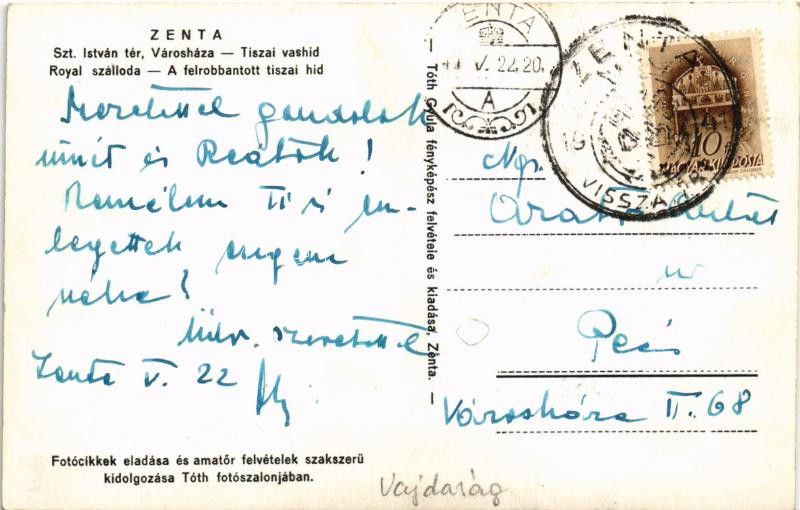 ZENTA
Szt. István tér, Városháza — Tiszai vashid
Royal szálloda — A felrobbantott tiszai hid
Szeretettel gondolok
mint és Reátok!
Remélem Ti is em-
legettek engem
néha?
szeretettel
Zenta V. 22
— Tóth Gyula fényképész felvétele és kiadása, Zenta. —
ZENTA
V. 22 20
A
ZENTA
VISSZA
10
MAGYAR KIR. POSTA
Ngs.
úr
Pécs
Városháza II. 68
Fotócikkek eladása és amatőr felvételek szakszerü
kidolgozása Tóth fotószalonjában.
Vajdaság